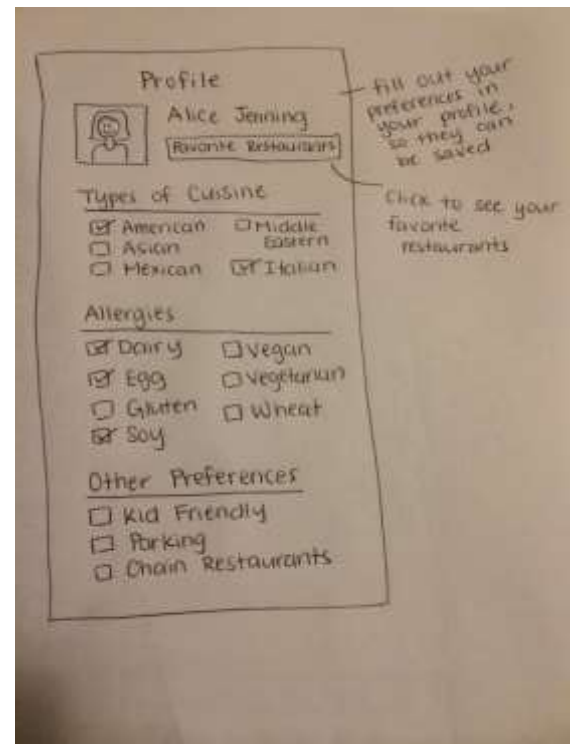 Profile
Alice Jenning
Favorite Restaurants
Types of Cuisine
American
Middle Eastern
Asian
Mexican
Italian
Allergies
Dairy
Vegan
Egg
Vegetarian
Gluten
Wheat
Soy
Other Preferences
Kid Friendly
Parking
Chain Restaurants
fill out your
preferences in
your profile,
so they can
be saved
Click to see your
favorite
restaurants